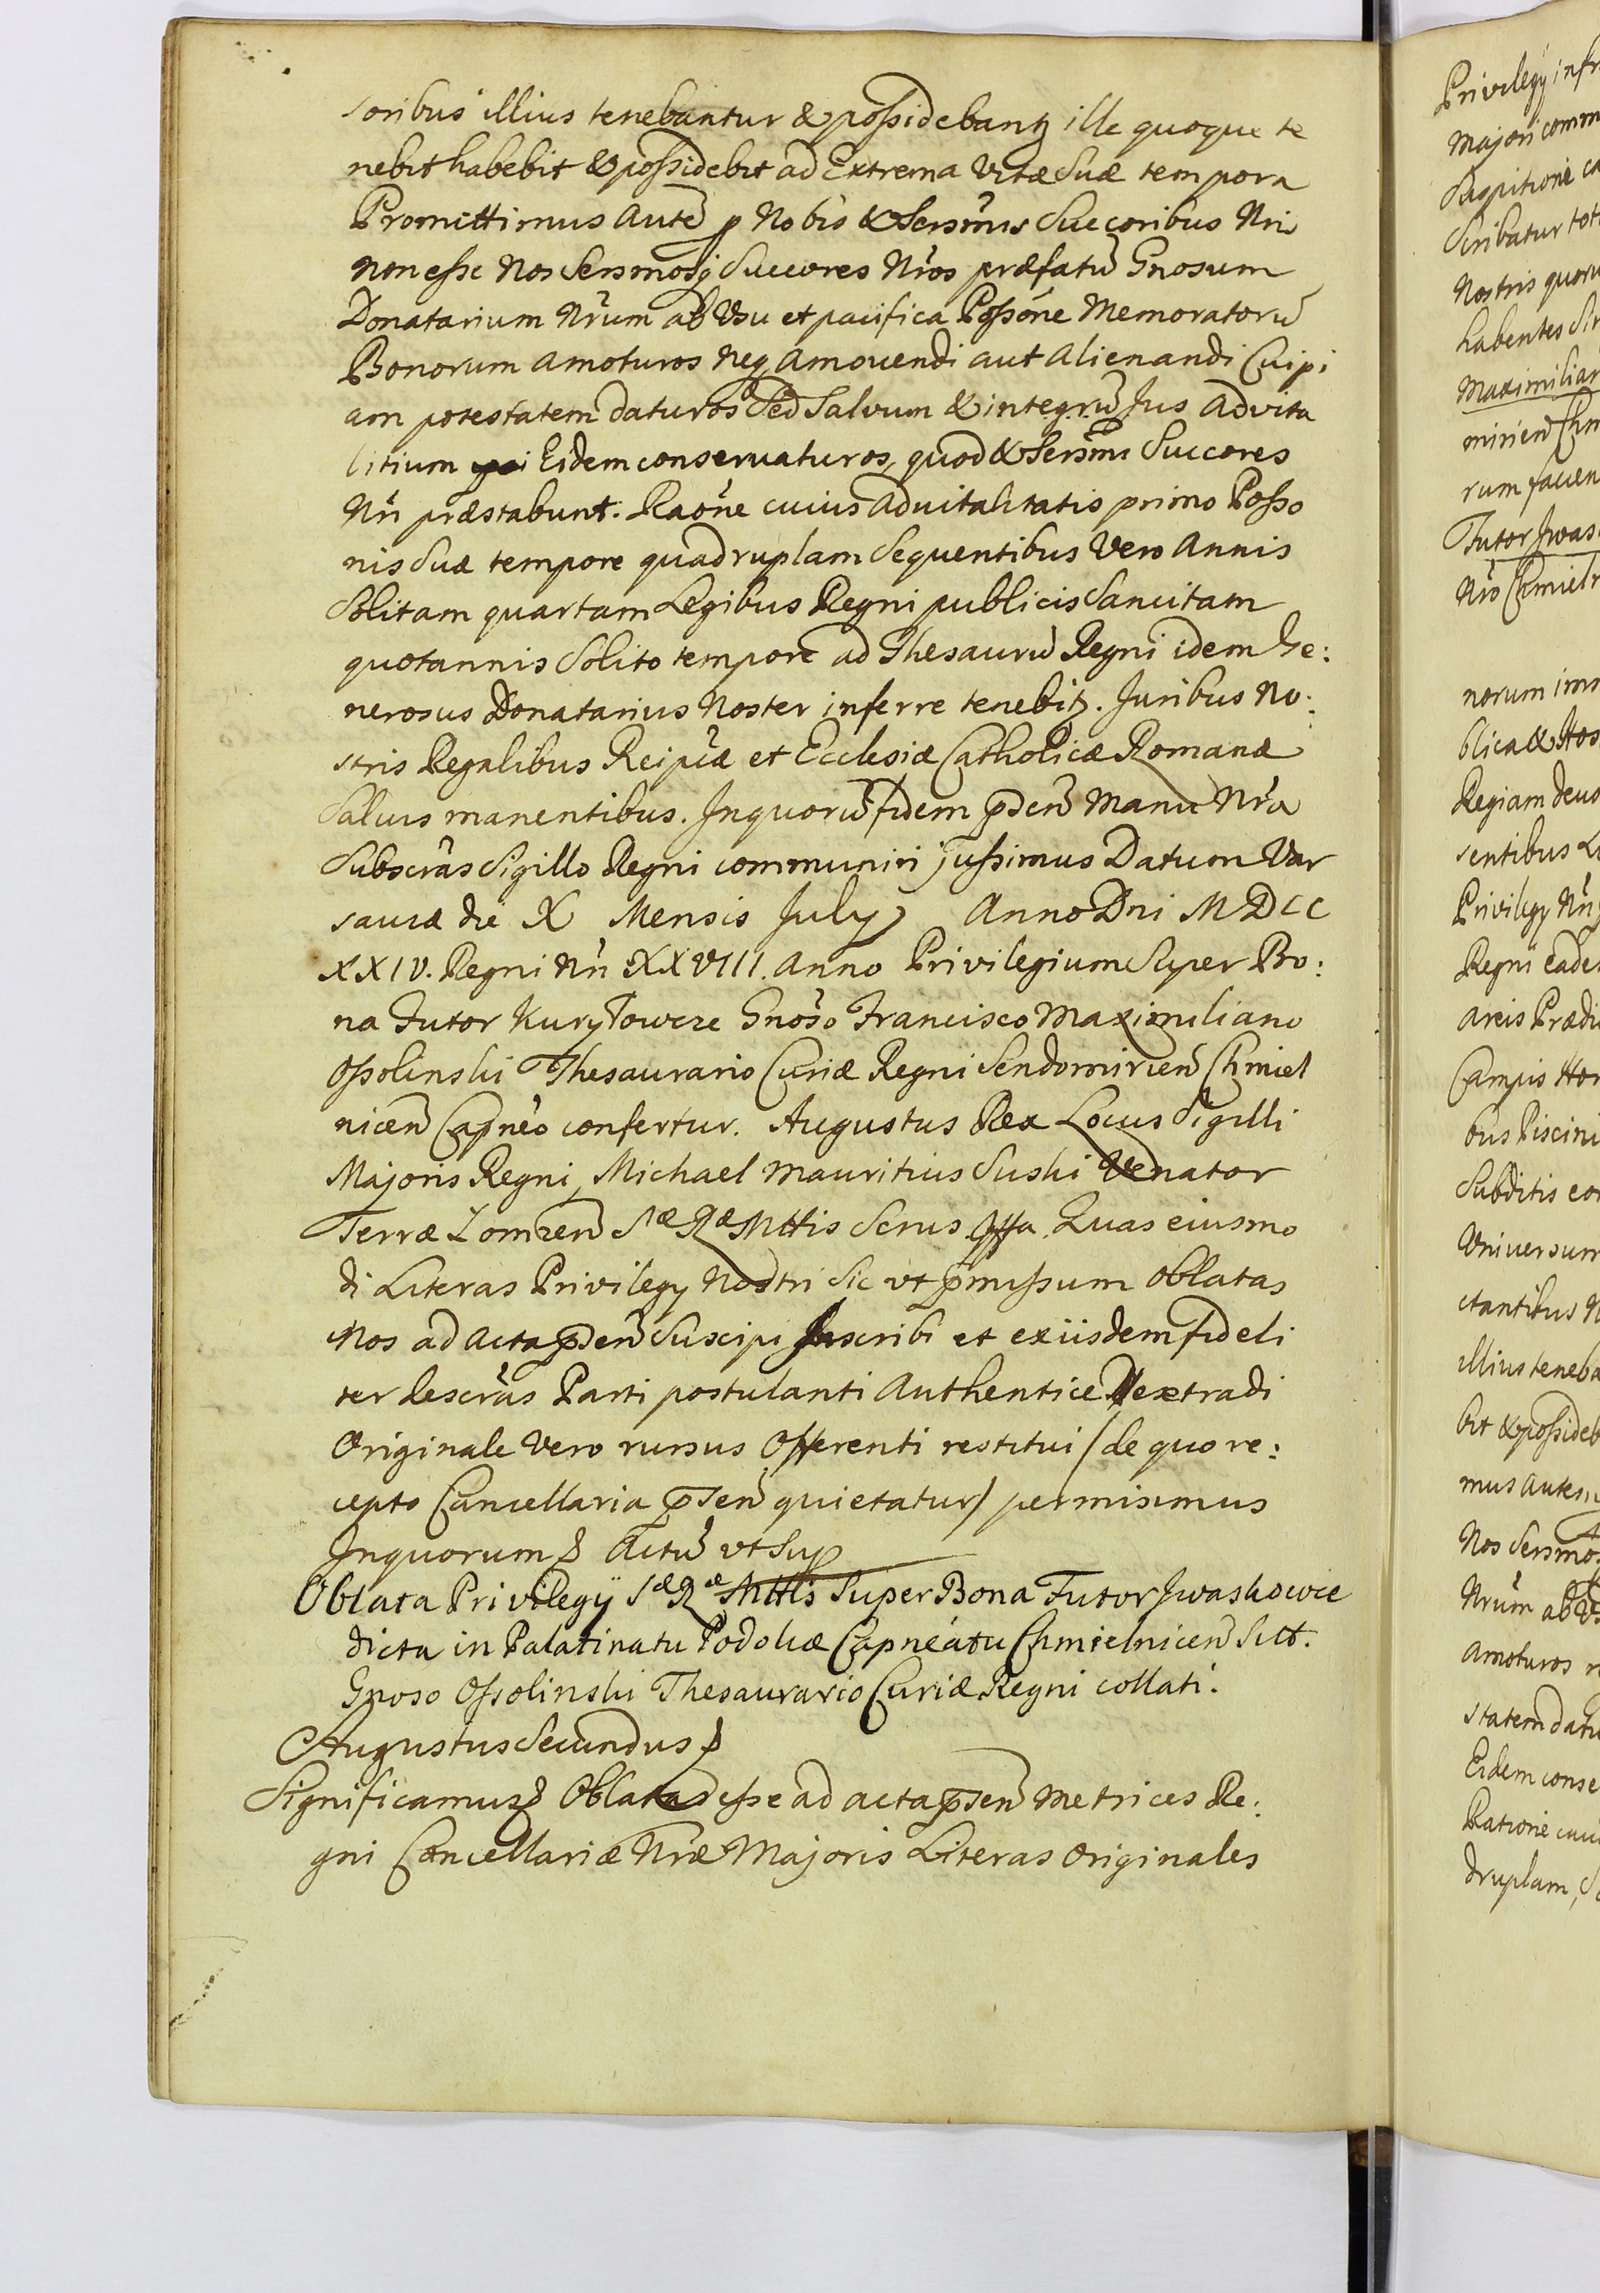 soribus illius tenebantur & possidebantꝫ ille quoque te
nebit habebit & possidebit ad Extrema Vitæ Suæ tempora
Promittimus Autē p Nobis & Sersm̃is Succoribus Nri
non esse Nos Sersmosqȝ Succores Nr̃os præfatū Gnosum
Donatarium Nr̃um ab Vsu et pacifica Possõne Memoratorū
Bonorum Amoturos Neqȝ Amovendi aut Alienandi Cuipi
am potestatem daturos Sed Salvum & integrū Jus Advita
litium Eidem conservaturos, quod & Sersm̃i Succores
Nr̃i præstabunt. Raõne cuius Advitalitatis primo Posso
nis Suæ tempore quadruplam Sequentibus Vero Annis
Solitam quartam Legibus Regni publicis Sancitam
quotannis Solito tempore ad Thesaurū Regni idem Ge:
nerosus Donatarius Noster inferre tenebitꝫ. Juribus No:
stris Regalibus Reipcæ et Ecclesiæ Catholicæ Romanæ
Salvis manentibus. Inquorū fidem p̃sen̄ Manu Nr̃a
Subscr̃as Sigillo Regni communiri jussimus Datum Var
saviæ die X Mensis July Anno Dni MDCC
XXIV. Regni Nr̃i XXVIII Anno Privilegium Super Bo:
na Futor Kuryłowcze Gnõso Francisco Maximiliano
Ossolinski Thesaurario Curiæ Regni Sendomirien̄ Chmiel
nicen̄ Capnẽo confertur. Augustus Rex Locus Sigilli
Majoris Regni, Michael Mauritius Suski Venator
Terræ Lomzen̄ Sæ Ræ Mttis Scrus. Quas eiusmo
di Literas Privilegy Nostri Sic vt p̃missum Oblatas
Nos ad Acta p̃sen̄ Suscipi Inscribi et ex iisdem fideli
ter descr̃as Parti postulanti Authentice extradi
Originale Vero rursus Offerenti restitui /de quo re:
cepto Cancellaria p̃sen̄ quietatur/ permisimus
Inquorum Actū vt Supᷓ
Oblata Privilegÿ Sæ Ræ Mttis Super Bona Futor Jwaskowce
dicta in Palatinatu Podoliæ Capneátu Chmielnicen̄ Sitt.
Gnoso Ossolinski Thesaurario Curiæ Regni collati.
Augustus Secundus
Significamus Oblatas esse ad acta p̃sen̄ Metrices Re:
gni Cancellariæ Nr̃æ Majoris Literas Originales
Majori comm
Nostris quoru
habentes
Maximilian
rum faven
Tutor Jwas
norum
Regiam deus
sentibus
Campis Hor
Subditis
Universum
ctantibus
illius teneba
bit & possideb
mus autem
Amoturos
Eidem conse
druplam,